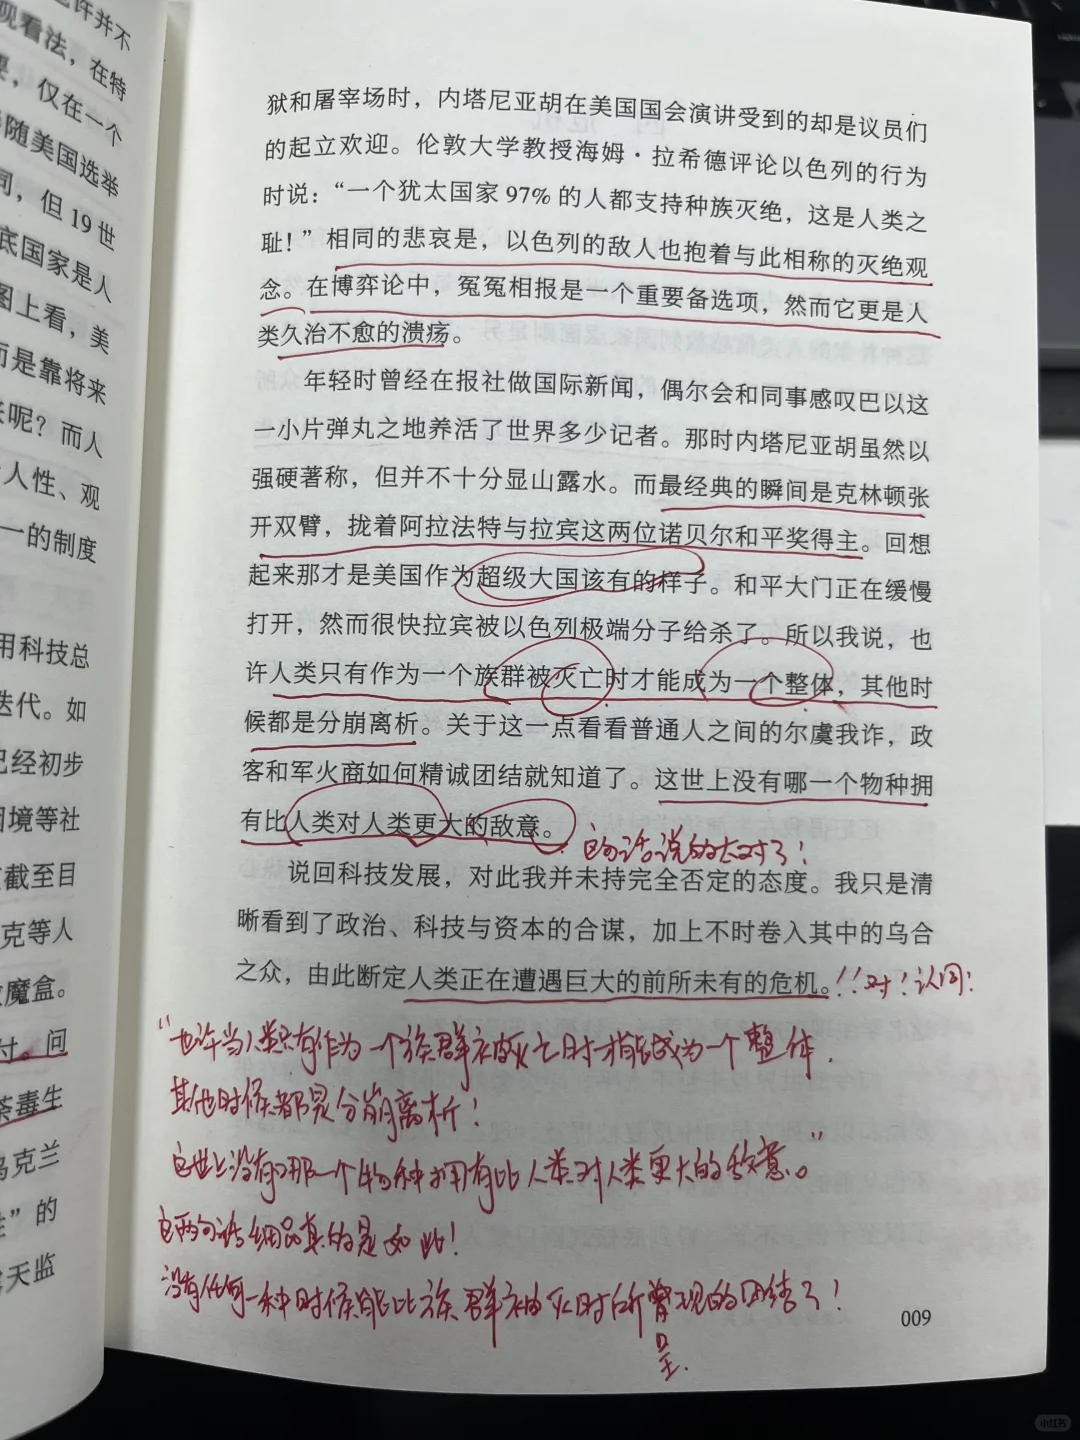 许并不
观看法，在特
，仅在一个
随美国选举
同，但19世
底国家是人
图上看，美
而是靠将来
呢？而人
人性、观
一的制度
用科技总
迭代。如
已经初步
困境等社
截至目
克等人
魔盒。
付。问
荼毒生
乌克兰
”的
天监
狱和屠宰场时，内塔尼亚胡在美国国会演讲受到的却是议员们
的起立欢迎。伦敦大学教授海姆·拉希德评论以色列的行为
时说：“一个犹太国家97%的人都支持种族灭绝，这是人类之
耻！”相同的悲哀是，以色列的敌人也抱着与此相称的灭绝观
念。在博弈论中，冤冤相报是一个重要备选项，然而它更是人
类久治不愈的溃疡。
年轻时曾经在报社做国际新闻，偶尔会和同事感叹巴以这
一小片弹丸之地养活了世界多少记者。那时内塔尼亚胡虽然以
强硬著称，但并不十分显山露水。而最经典的瞬间是克林顿张
开双臂，拢着阿拉法特与拉宾这两位诺贝尔和平奖得主。回想
起来那才是美国作为超级大国该有的样子。和平大门正在缓慢
打开，然而很快拉宾被以色列极端分子给杀了。所以我说，也
许人类只有作为一个族群被灭亡时才能成为一个整体，其他时
候都是分崩离析。关于这一点看看普通人之间的尔虞我诈，政
客和军火商如何精诚团结就知道了。这世上没有哪一个物种拥
有比人类对人类更大的敌意。
这句话说的太对了！
说回科技发展，对此我并未持完全否定的态度。我只是清
晰看到了政治、科技与资本的合谋，加上不时卷入其中的乌合
之众，由此断定人类正在遭遇巨大的前所未有的危机。！！对！认同！
“也许当人类只有作为一个族群被灭亡时才能成为一个整体.
其他时候都是分崩离析！
这世上没有哪一个物种拥有比人类对人类更大的敌意。”
这两句话细品真的是如此！
没有任何一种时候能比族群被灭时所呈现的团结了！
009
小红书